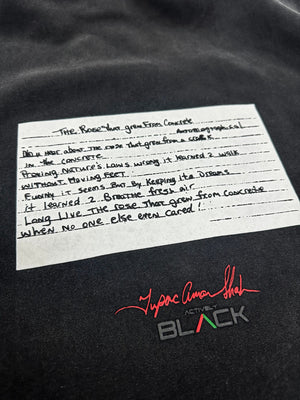 The Rose that grew From Concrete
Autobiographical
Did u hear about the rose that grew from a crack
in the concrete
Proving Nature's Laws wrong it learned 2 walk
without moving feet
Funny it seems But By Keeping its Dreams
it learned 2 Breathe fresh air
Long Live the rose that grew from concrete
when no one else even cared!
Tupac Amaru Shakur
ACTIVELY
BLACK